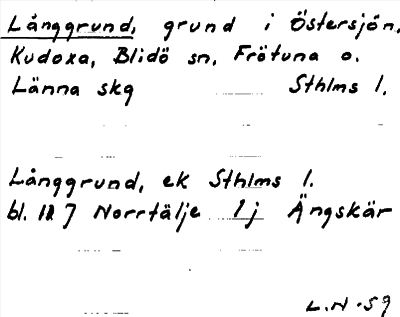 Långgrund, grund i Östersjön,
Kudoxa, Blidö sn, Frötuna o.
Länna skg Sthlms l.
Långgrund, ek Sthlms l.
bl. 117 Norrtälje 1j Ängskär
L.N.-59